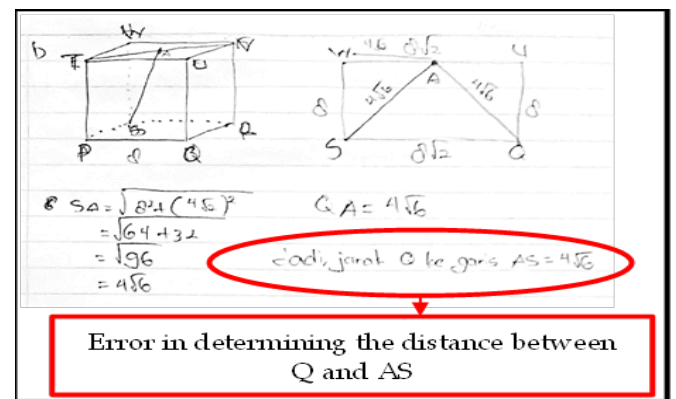 b
W V
T A U
S R
P 8 Q
W 8√2 U
A
8 4√6 4√6 8
S 8√2 Q
SA = √8²+(4√6)² QA = 4√6
= √64+32
= √96 Jadi, jarak Q ke garis AS = 4√6
= 4√6
Error in determining the distance between
Q and AS